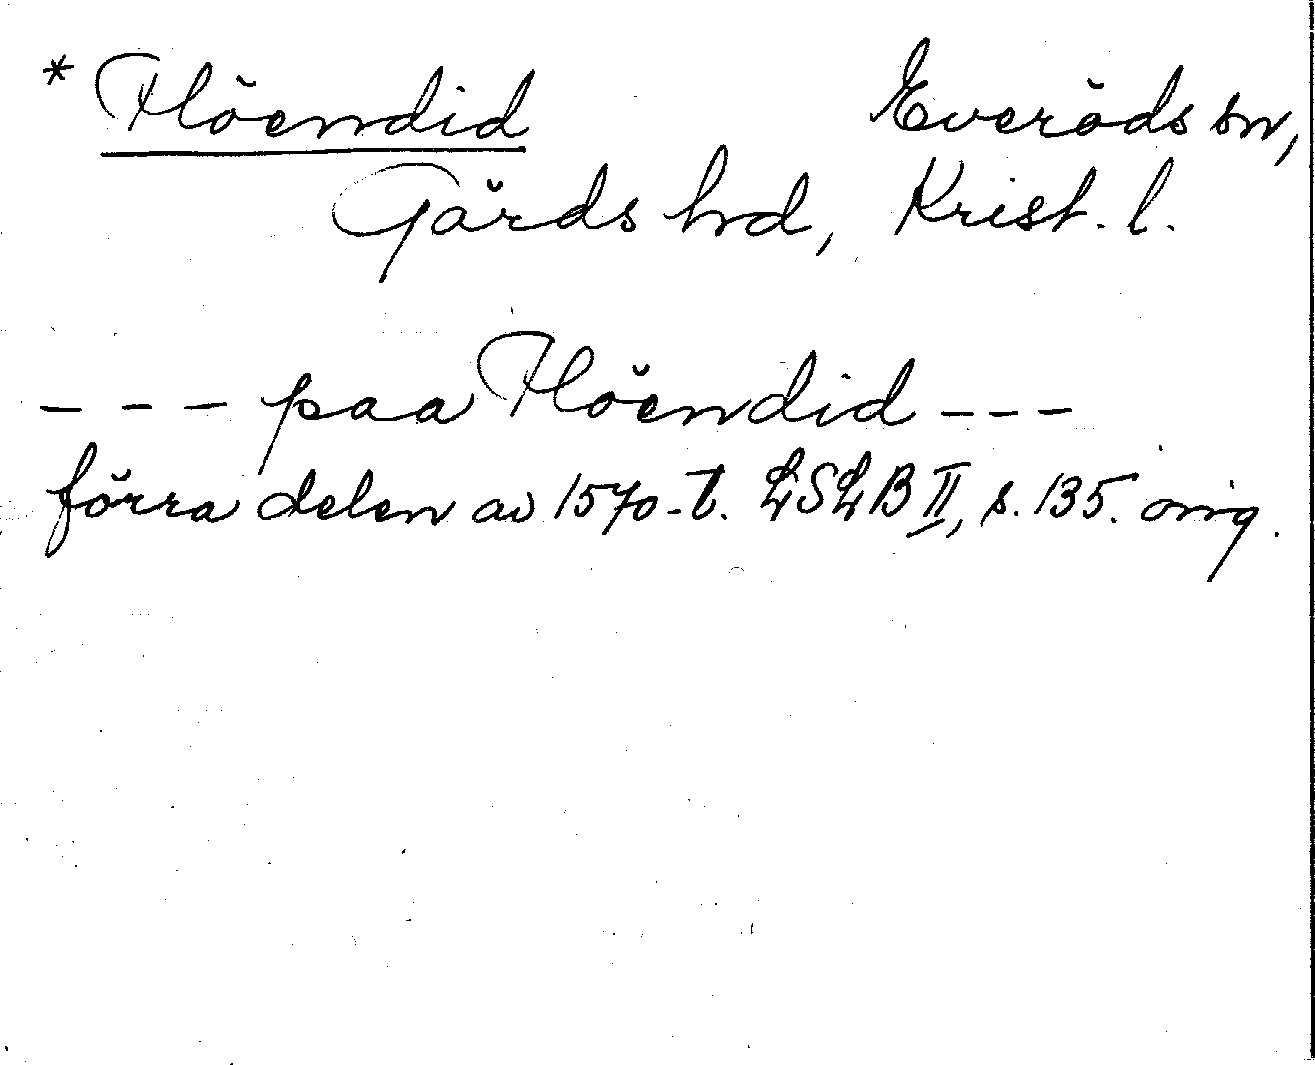 * Höendid Everöds sn,
Gärds hd, Krist. l.
--- paa Höendid ---
förra delen av 1570-t. LSLB II, s. 135. orig.